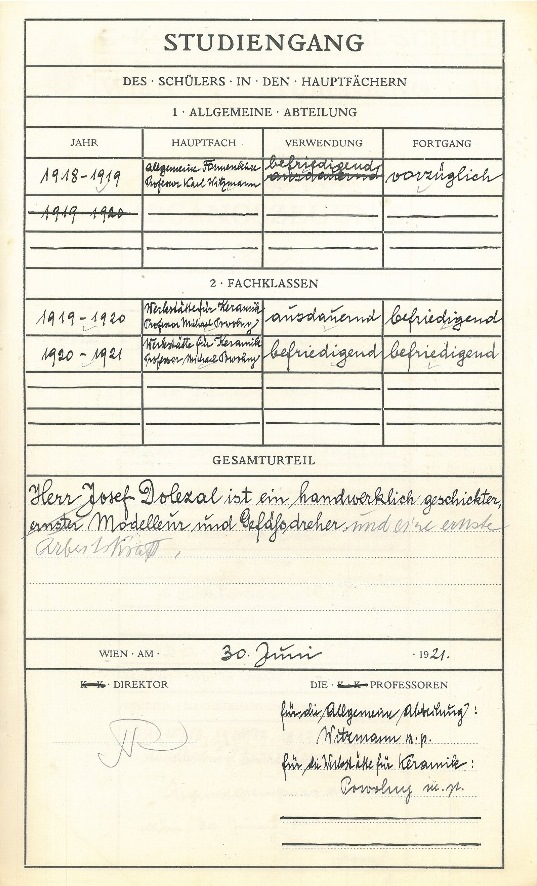 STUDIENGANG
DES · SCHÜLERS · IN · DEN · HAUPTFÄCHERN
1 · ALLGEMEINE · ABTEILUNG
JAHR HAUPTFACH VERWENDUNG FORTGANG
1918-1919 Allgemeine Formenlehre befriedigend, vorzüglich
Professor Karl Witzmann ausdauernd
1919-1920
2 · FACHKLASSEN
1919-1920 Werkstätte für Keramik ausdauernd befriedigend
Professor Michael Powolny
1920-1921 Werkstätte für Keramik befriedigend befriedigend
Professor Michael Powolny
GESAMTURTEIL
Herr Josef Dolezal ist ein handwerklich geschickter,
ernster Modelleur und Gefäßdreher und eine ernste
Arbeitskraft.
WIEN · AM · 30. Juni · 1921.
K · K · DIREKTOR DIE · K · K · PROFESSOREN
für die Allgemeine Abteilung:
Witzmann m.p.
für die Werkstätte für Keramik:
Powolny m.p.